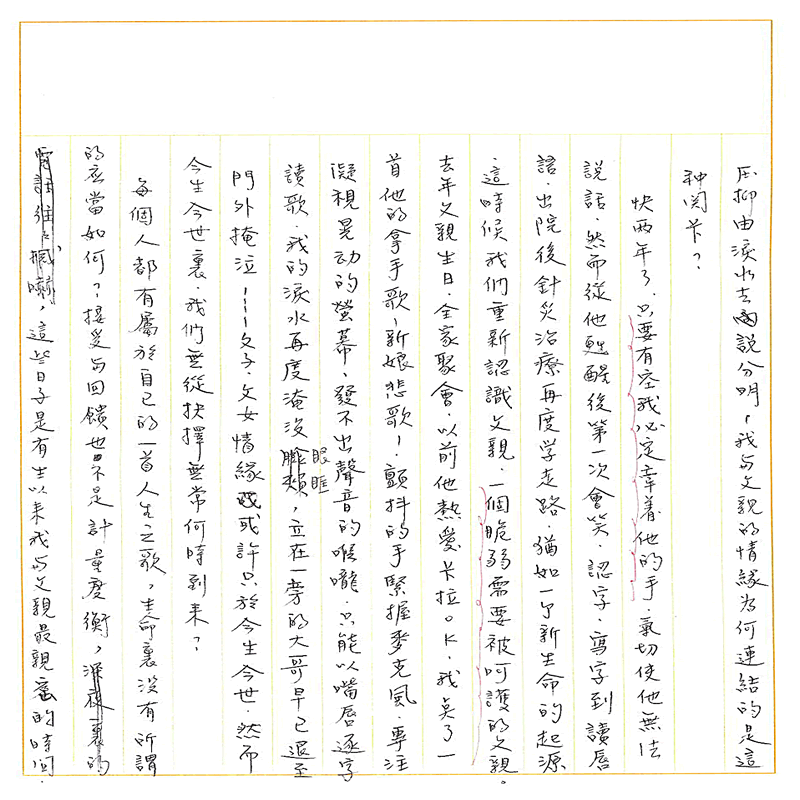 压抑由淚水去說分明，我与父親的情緣为何連結的是這
种关卡？
快两年了．只要有空我必定牽著他的手．氣切使他無法
說話．然而從他甦醒後第一次會笑．認字．寫字到讀唇
語．出院後針灸治療再度学走路．猶如一个新生命的起源
．這時候我們重新認識父親．一個脆弱需要被呵護的父親。
去年父親生日．全家聚會．以前他熱愛卡拉OK．我点了一
首他的拿手歌－新娘悲歌－．顫抖的手緊握麥克風．專注
凝視晃动的螢幕．發不出聲音的喉嚨．只能以嘴唇逐字
讀歌．我的淚水再度淹沒眼眶，立在一旁的大哥早已退至
門外掩泣----父子．父女情緣或許只於今生今世．然而
今生今世裏．我們無從抉擇無常何時到来？
每個人都有屬於自己的一首人生之歌，生命裏没有所謂
的应當如何？接受与回饋也不是計量度衡，深夜裏的
往，這些日子是有生以来我与父親最親蜜的時间．